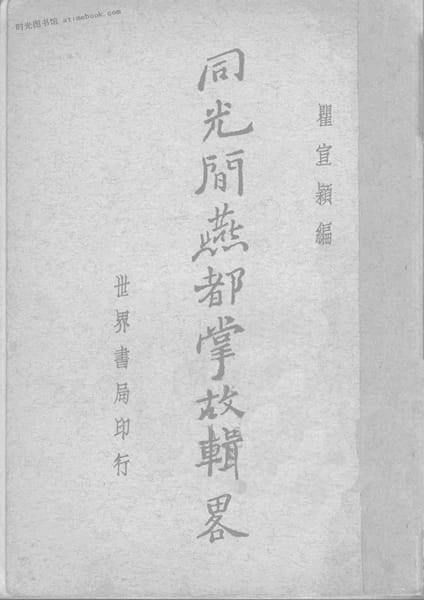 时光图书馆 atimebook.com
瞿宣穎編
同光間燕都掌故輯畧
世界書局印行